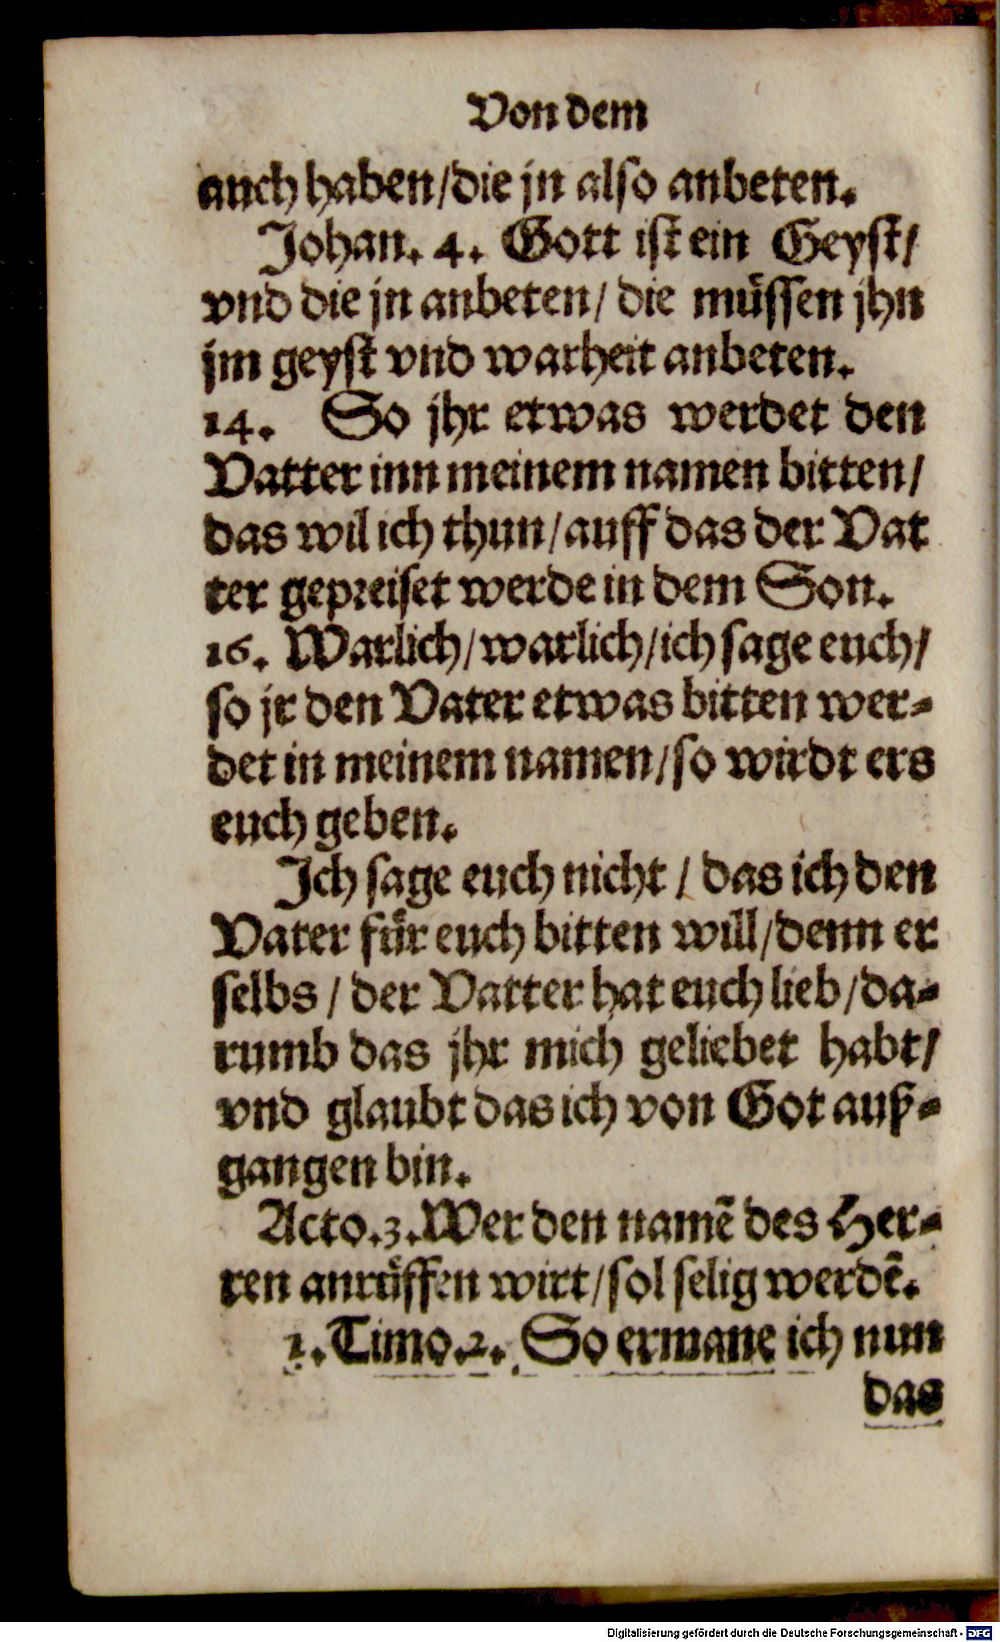 Von dem
auch haben/die jn also anbeten.
Johan. 4. Gott ist ein Geyst/
vnd die jn anbeten/ die müssen jhn
jm geyst vnd warheit anbeten.
14. So jhr etwas werdet den
Vatter inn meinem namen bitten/
das wil ich thun/auff das der Vat
ter gepreiset werde in dem Son.
16. Warlich/warlich/ich sage euch/
so jr den Vater etwas bitten wer=
det in meinem namen/so wirdt ers
euch geben.
Ich sage euch nicht / das ich den
Vater für euch bitten will/denn er
selbs / der Vatter hat euch lieb/da=
rumb das jhr mich geliebet habt/
vnd glaubt das ich von Got auß=
gangen bin.
Acto.3.Wer den namẽ des Her=
ren anrüffen wirt/sol selig werdẽ.
1.Timo.2. So ermane ich nun
das
Digitalisierung gefördert durch die Deutsche Forschungsgemeinschaft - DFG